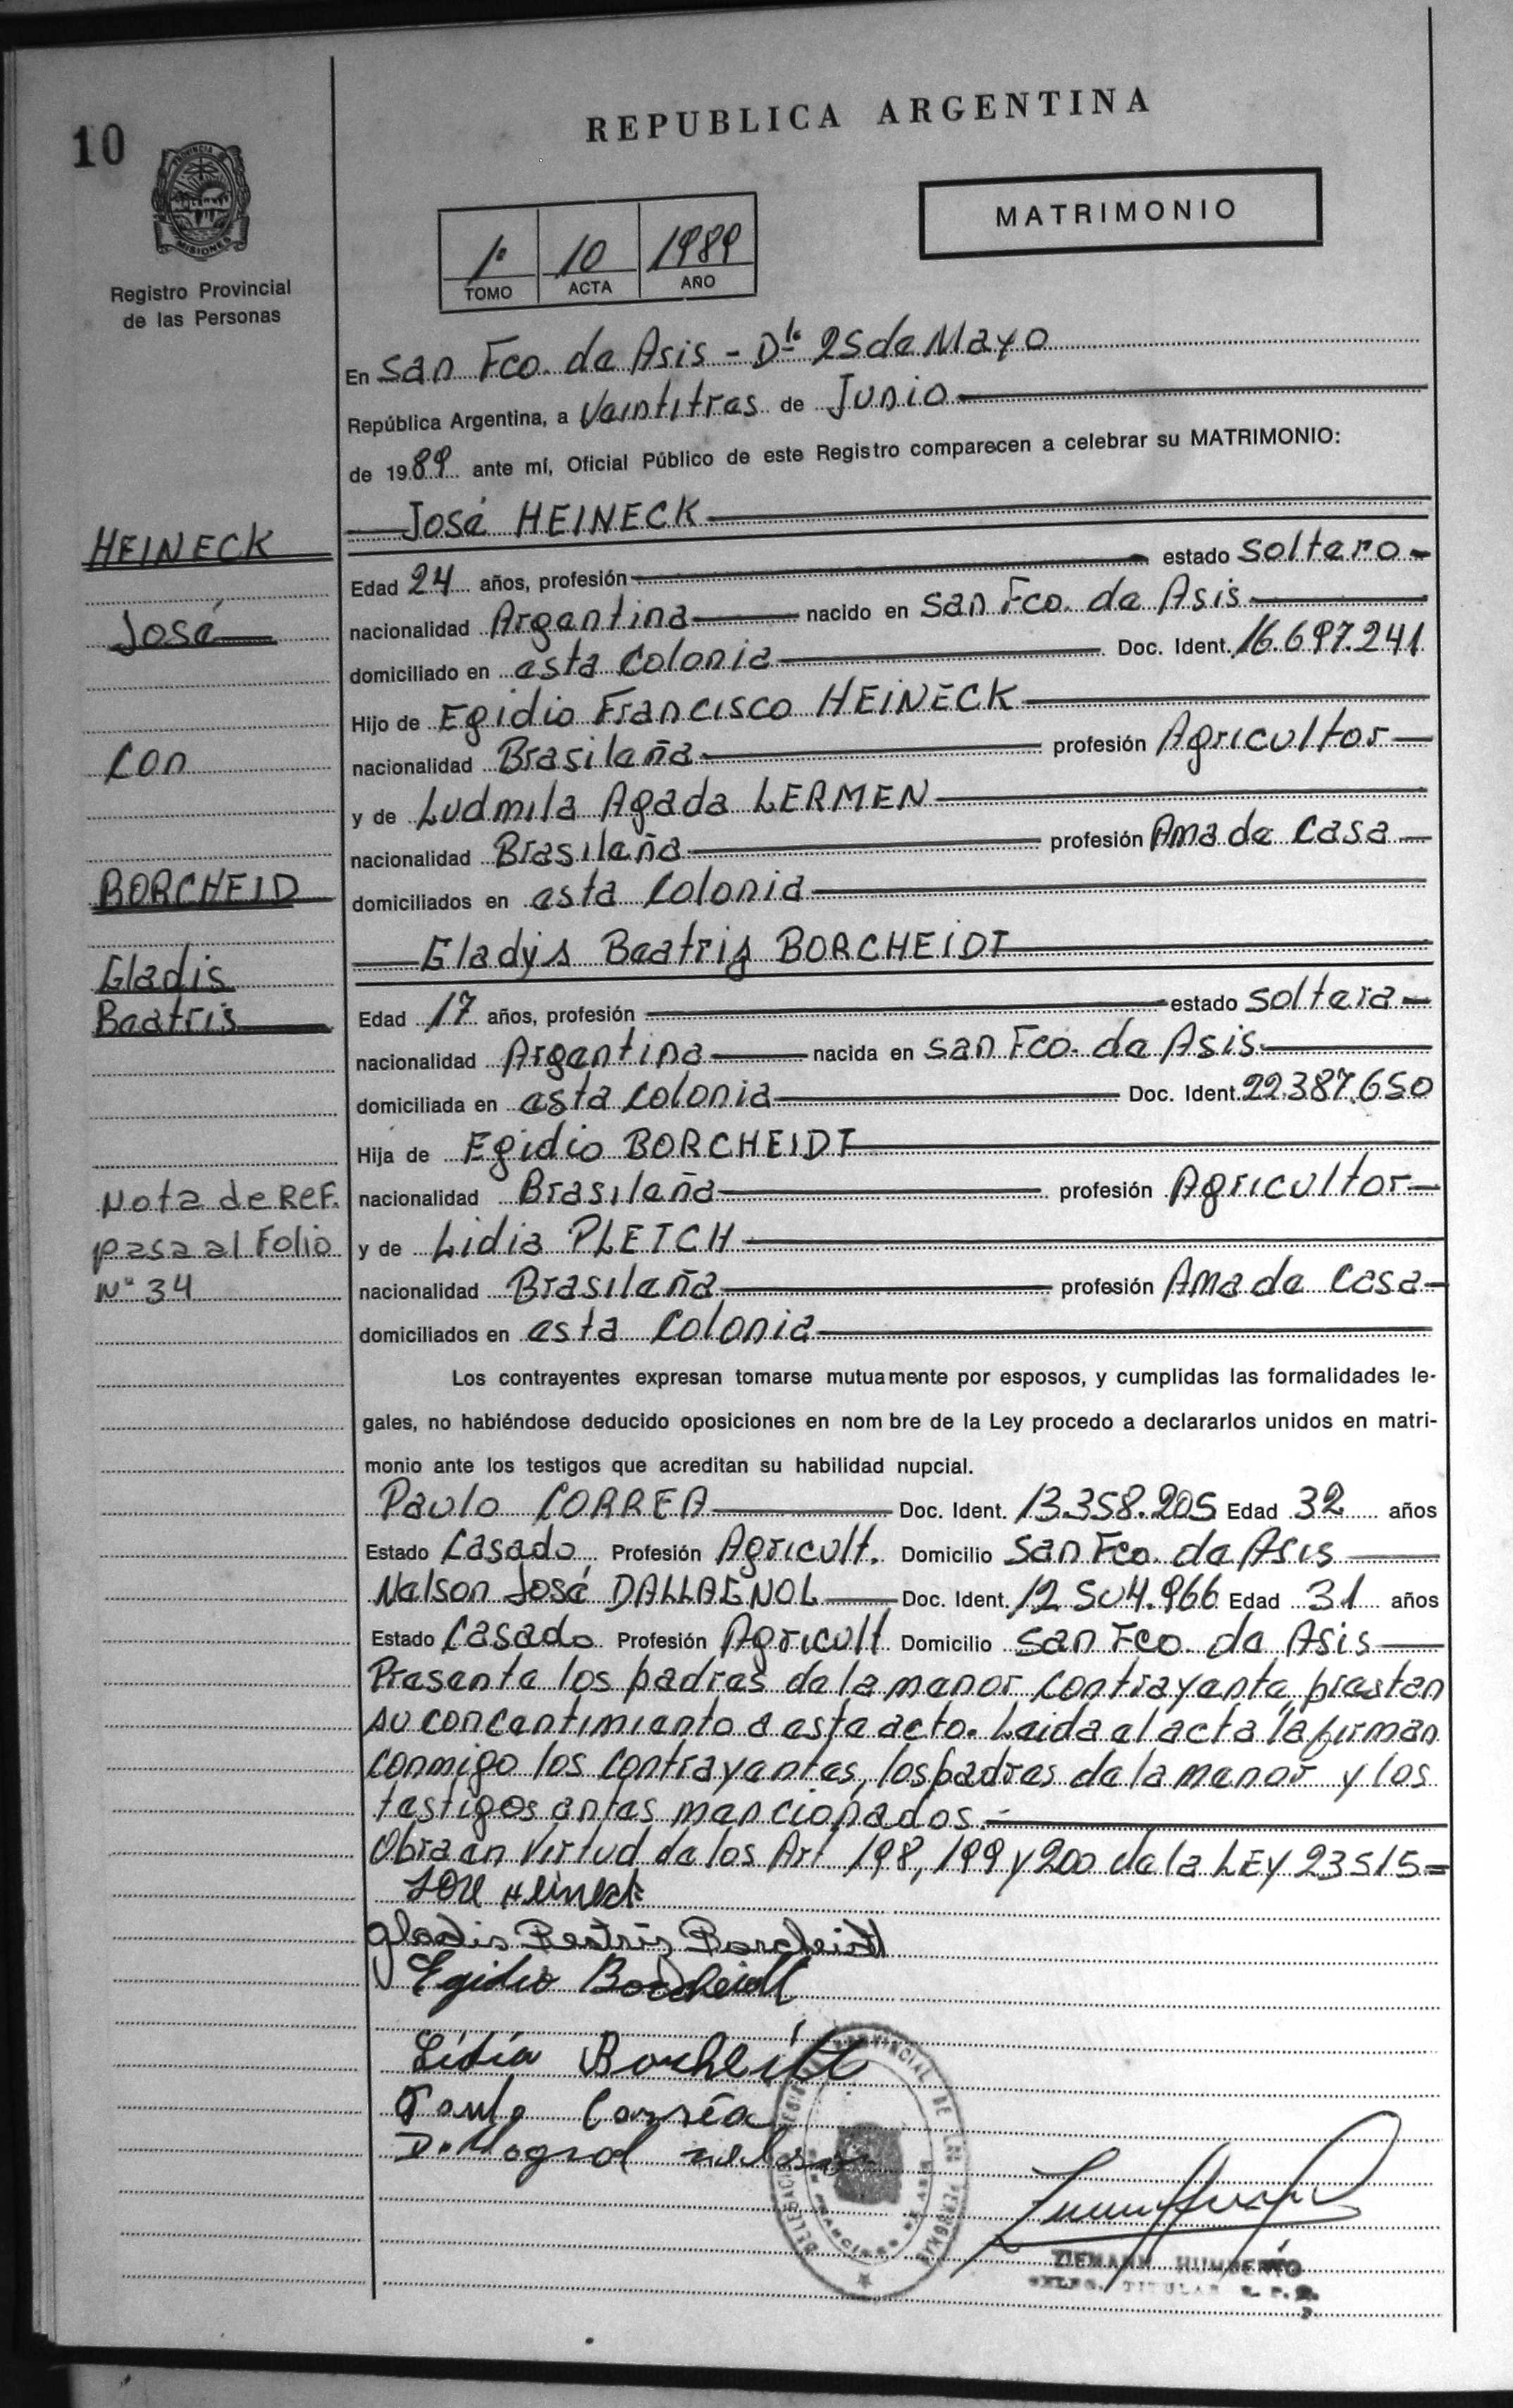 REPUBLICA ARGENTINA
10
PROVINCIA DE
MISIONES
Registro Provincial
de las Personas
MATRIMONIO
1º 10 1989
TOMO ACTA AÑO
En San Fco. de Asis - Dto 25 de Mayo
República Argentina, a Veintitres de Junio
de 1989 ante mí, Oficial Público de este Registro comparecen a celebrar su MATRIMONIO:
José HEINECK
HEINECK
Edad 24 años, profesión estado soltero
José
nacionalidad Argentina nacido en San Fco. de Asis
domiciliado en esta Colonia Doc. Ident. 16.697.241
Hijo de Egidio Francisco HEINECK
Con
nacionalidad Brasileña profesión Agricultor
y de Ludmila Agada LERMEN
nacionalidad Brasileña profesión Ama de Casa
BORCHEID
domiciliados en esta Colonia
Gladys Beatriz BORCHEIDT
Gladis
Beatris
Edad 17 años, profesión estado soltera
nacionalidad Argentina nacida en San Fco. de Asis
domiciliada en esta Colonia Doc. Ident. 22.387.650
Hija de Egidio BORCHEIDT
Nota de REF.
nacionalidad Brasileña profesión Agricultor
pasa al Folio
y de Lidia PLETCH
Nº 34
nacionalidad Brasileña profesión Ama de Casa
domiciliados en esta Colonia
Los contrayentes expresan tomarse mutuamente por esposos, y cumplidas las formalidades le-
gales, no habiéndose deducido oposiciones en nom bre de la Ley procedo a declararlos unidos en matri-
monio ante los testigos que acreditan su habilidad nupcial.
Paulo CORREA Doc. Ident. 13.358.205 Edad 32 años
Estado Casado Profesión Agricult. Domicilio San Fco. de Asis
Nelson José DALLAGNOL Doc. Ident. 12.504.966 Edad 31 años
Estado Casado Profesión Agricult Domicilio San Fco. de Asis
Presente los padres de la menor contrayente, prestan
su concentimiento a este acto. Leida el acta la firman
conmigo los contrayentes, los padres de la menor y los
testigos antes mencionados.-
Obra en Virtud de los Art 198, 199 y 200 de la LEY 23515=
José Heineck
Gladis Beatris Borcheidt
Egidio Borcheidt
Lidia Borcheidt
Paulo Corrêa
Dallagnol nelson
ZIEMANN HUMBERTO
DELEG. TITULAR R. P. P.